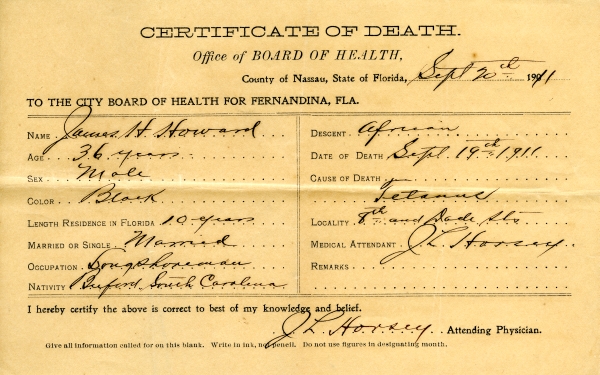 CERTIFICATE OF DEATH.
Office of BOARD OF HEALTH,
County of Nassau, State of Florida, Sept 20th 1911
TO THE CITY BOARD OF HEALTH FOR FERNANDINA, FLA.
NAME James H. Howard
AGE 36 years
SEX Male
COLOR Black
LENGTH RESIDENCE IN FLORIDA 10 years
MARRIED OR SINGLE Married
OCCUPATION Longshoreman
NATIVITY Buford South Carolina
DESCENT African
DATE OF DEATH Sept. 19th 1911
CAUSE OF DEATH
Tetanus
LOCALITY 8th and Dade Sts
MEDICAL ATTENDANT J L Horsey
REMARKS
I hereby certify the above is correct to best of my knowledge and belief.
J L Horsey Attending Physician.
Give all information called for on this blank. Write in ink, not pencil. Do not use figures in designating month.